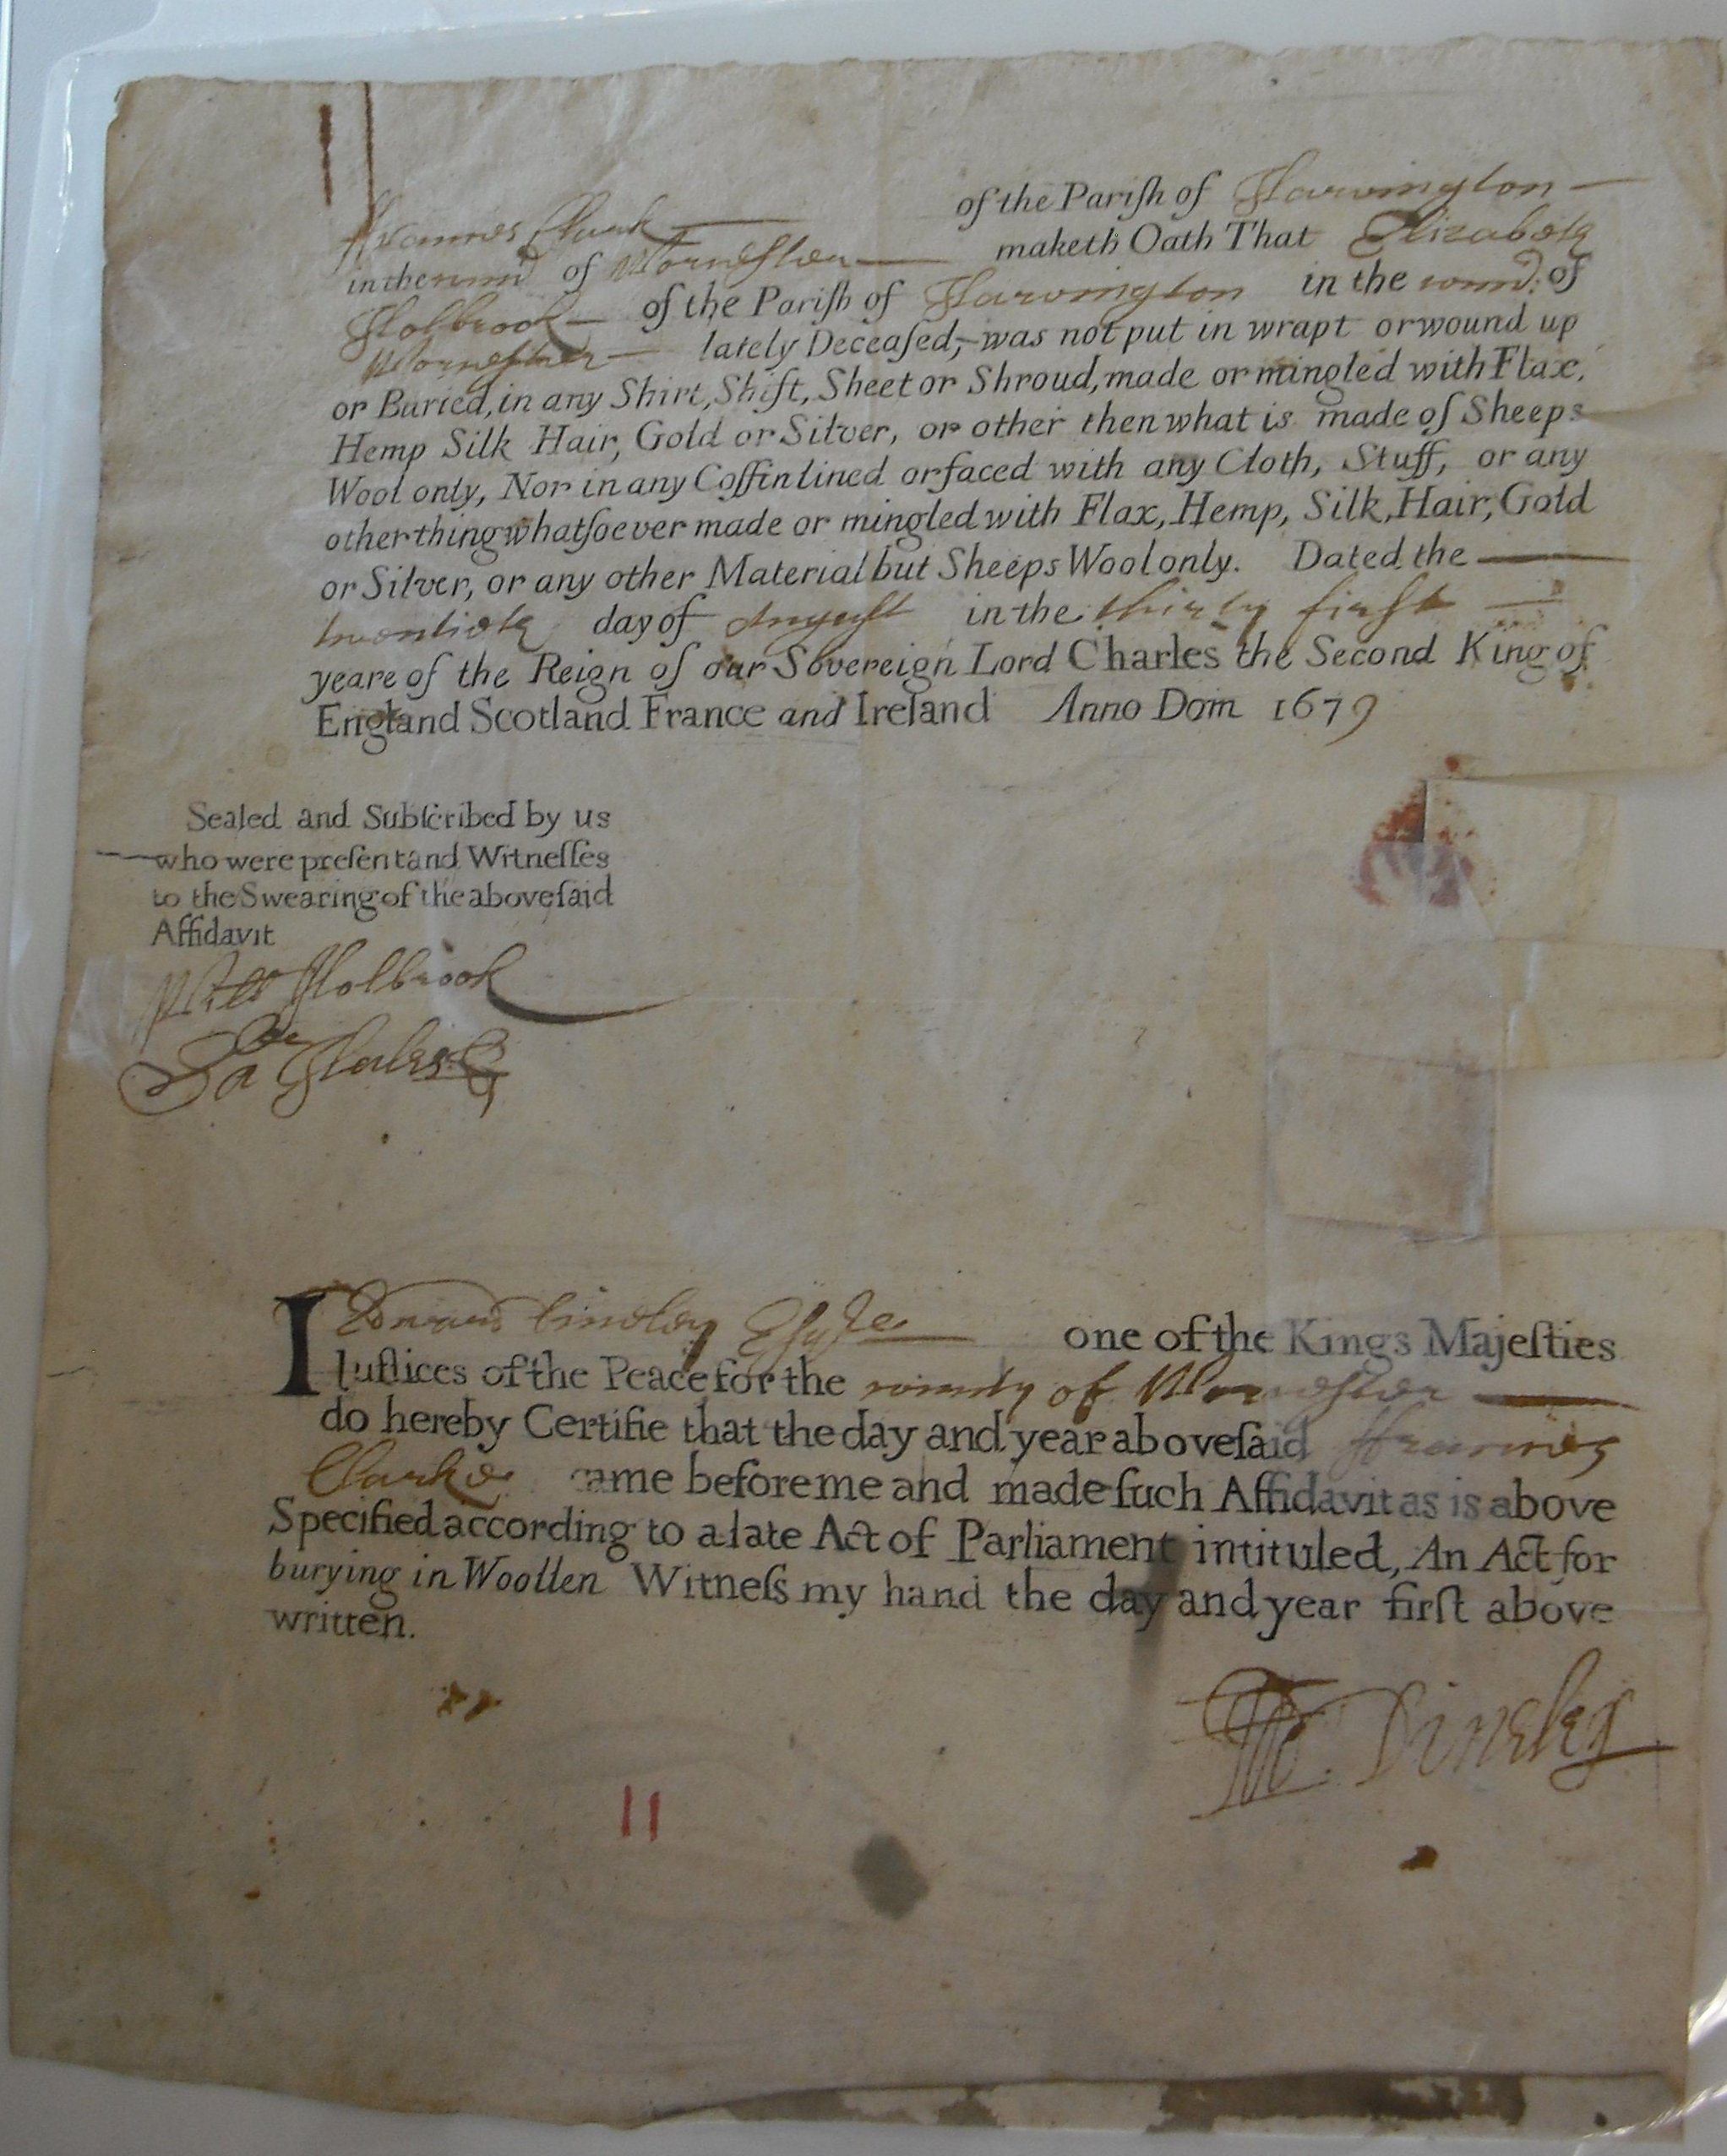 of the Pariſh of Harvington
ffrances Clark
in the com̃ of Worcester maketh Oath That Elizabeth
Holbrook of the Pariſh of Harvington in the com̃: of
Worcester lately Deceaſed, was not put in wrapt or wound up
or Buried, in any Shirt, Shift, Sheet or Shroud, made or mingled with Flax,
Hemp Silk Hair, Gold or Silver, or other then what is made of Sheeps
Wool only, Nor in any Coffin lined or faced with any Cloth, Stuff, or any
other thing whatſoever made or mingled with Flax, Hemp, Silk, Hair, Gold
or Silver, or any other Material but Sheeps Wool only. Dated the
twentieth day of August in the thirty first
yeare of the Reign of our Sovereign Lord Charles the Second King of
England Scotland France and Ireland Anno Dom 1679
Sealed and Subſcribed by us
who were preſent and Witneſſes
to the Swearing of the aboveſaid
Affidavit
Will Holbrook
I Edward Dineley Esqre one of the Kings Majeſties
Iuſtices of the Peace for the county of Worcester
do hereby Certifie that the day and year aboveſaid ffrances
Clarke came before me and made ſuch Affidavit as is above
Specified according to a late Act of Parliament intituled, An Act for
burying in Woollen Witneſs my hand the day and year firſt above
written.
Dineley
11